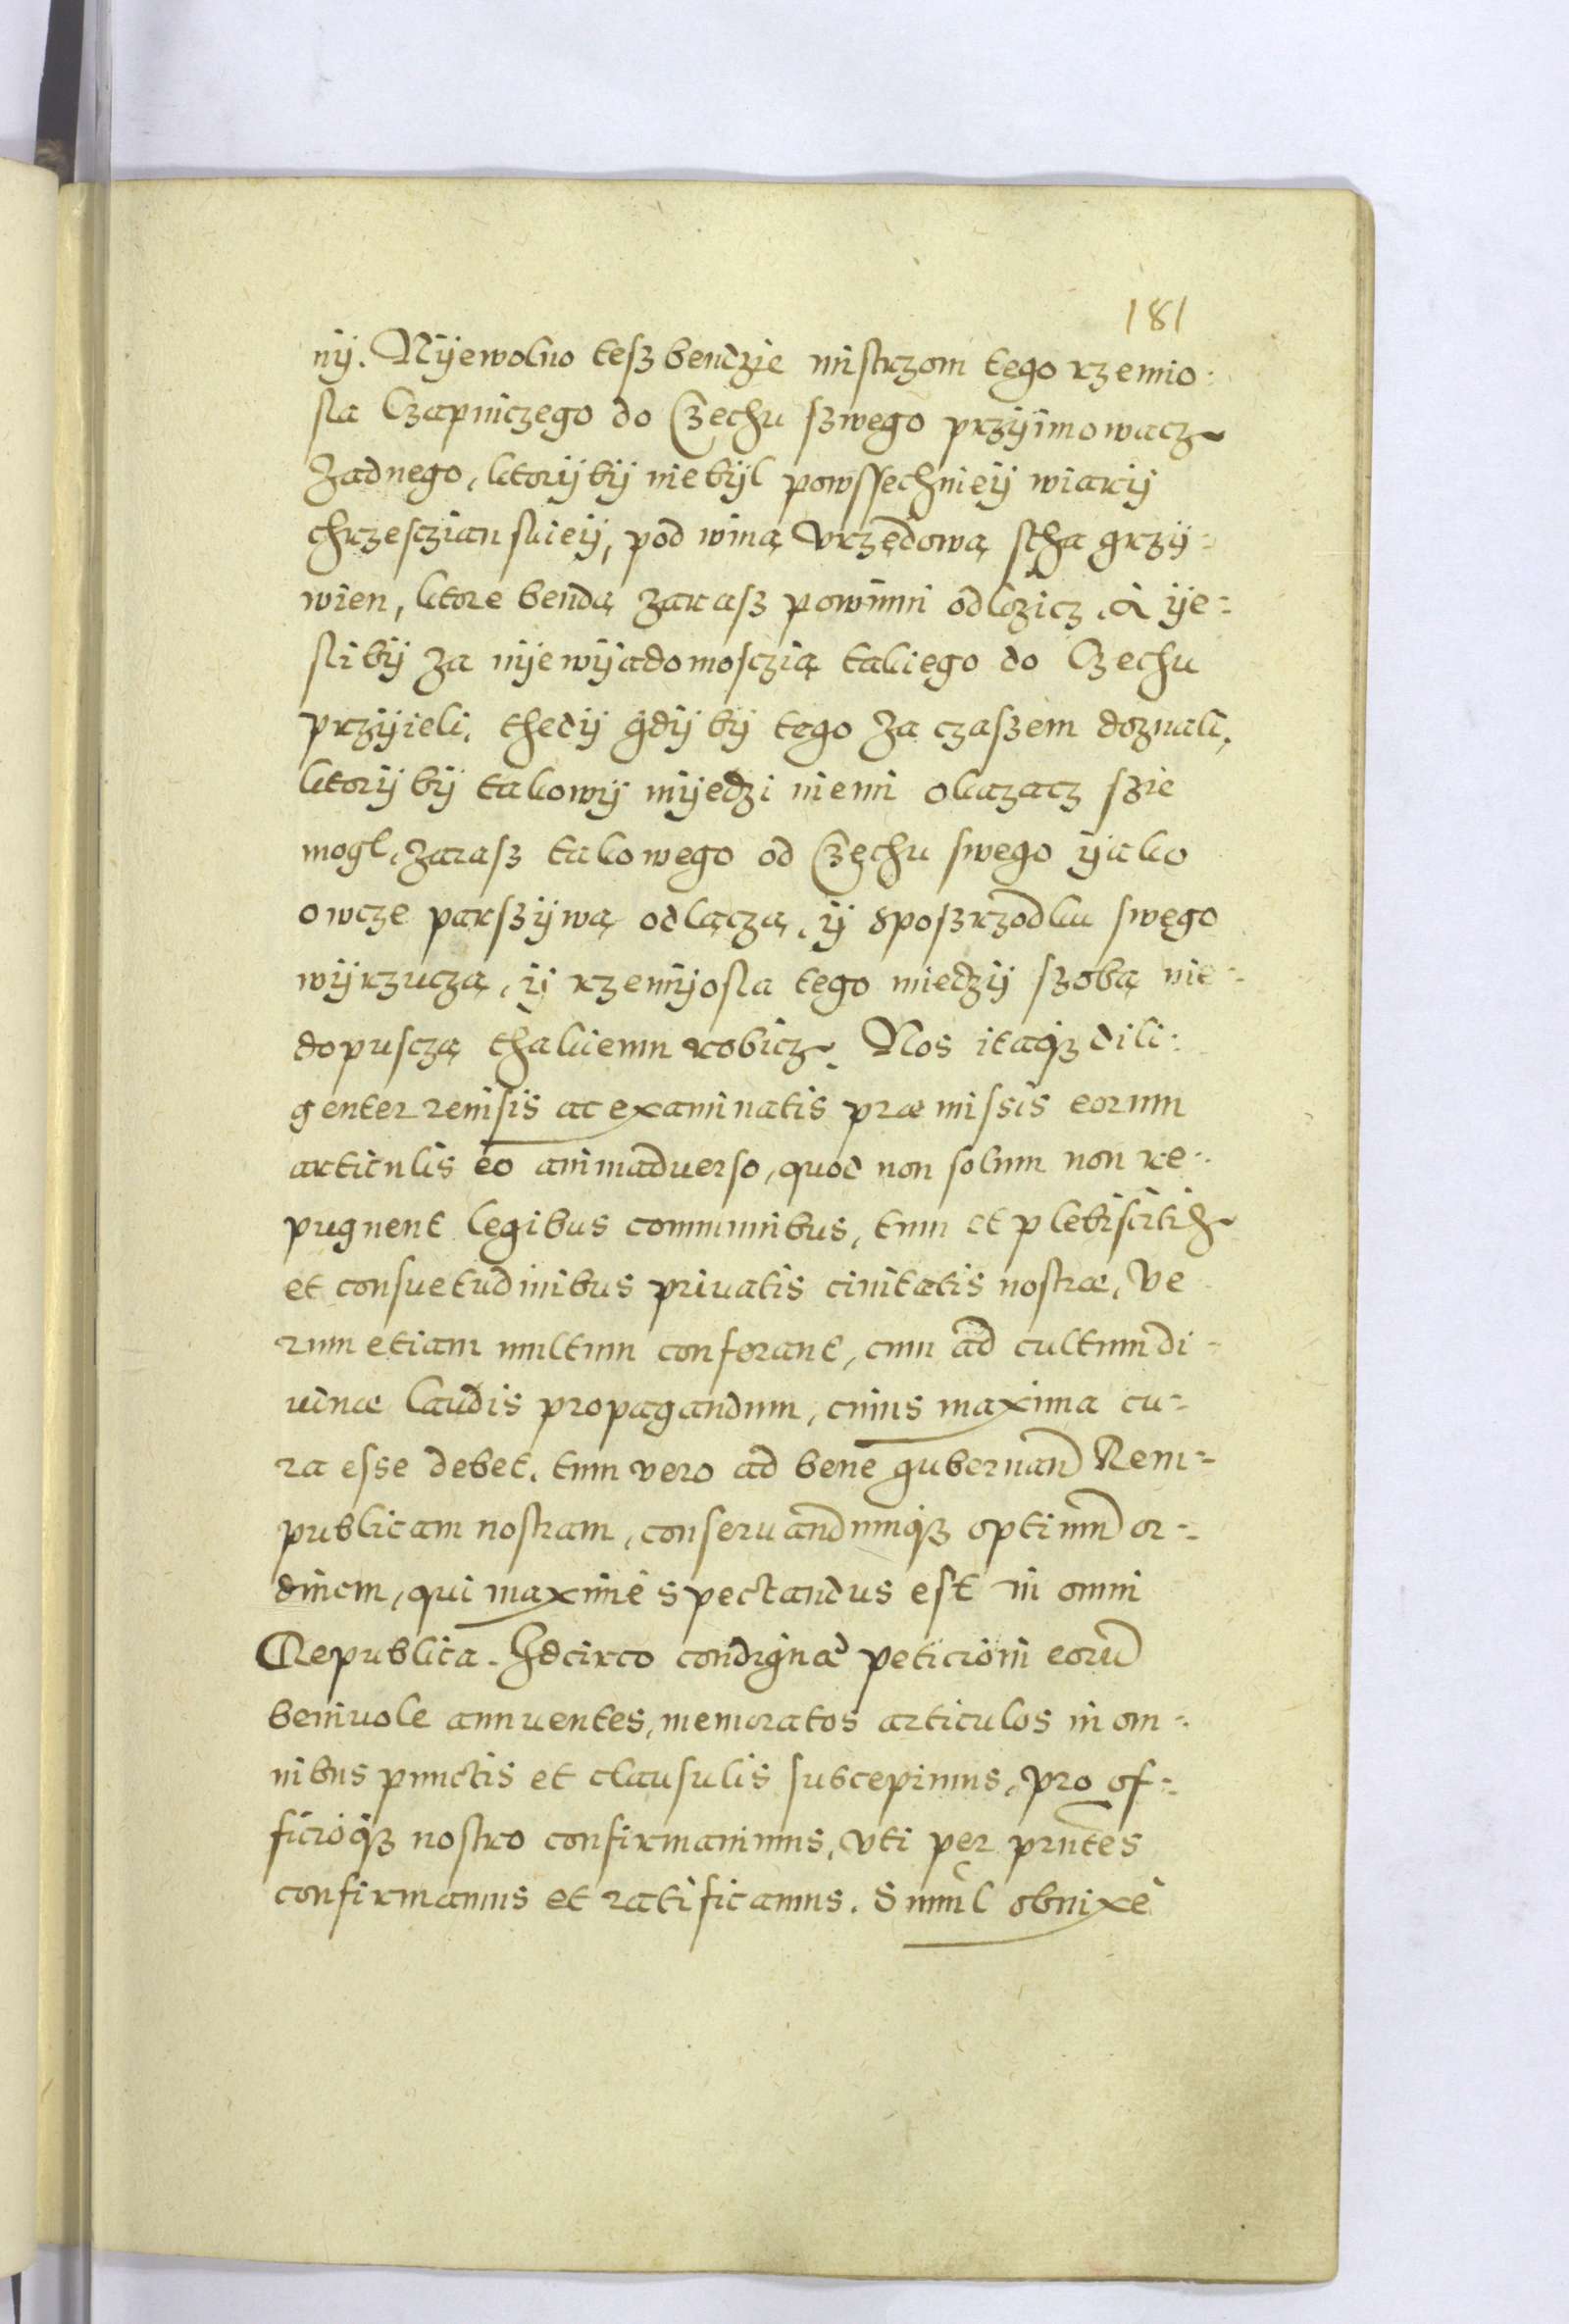 181
nÿ. Nÿewolno tesz bendzie mistrzom tego rzemio:
sla Czapniczego do Czechu szwego przÿimowacz
Zadnego, ktorÿ bÿ nie bÿl powssechnieÿ wiarÿ
chrzesczianskieÿ, pod winą Vrzędową stha grzÿ=
wien, ktore bendą zarasz powinni odlozicz. à ÿe=
sli bÿ za nÿewÿadomosczią takiego do Czechu
przÿieli, thedÿ gdÿ bÿ tego za czaszem doznali,
ktorÿ bÿ takowÿ mÿedzi niemi okazacz szie
mogl, zarasz takowego od Czechu swego ÿako
owcze parszÿwą odlączą, ÿ sposzrzodku swego
wÿrzuczą, ÿ rzemÿosla tego miedzÿ szobą nie=
dopusczą thakiemu robicz. Nos itaqꝫ dili:
genter reuisis ac examinatis præmissis eorum
articulis eo animaduerso, quod non solum non re=
pugnent legibus communibus, tum et plebiscitis
et consuetudinibus priuatis ciuitatis nostræ, Ve
rum etiam multum conferant, cum ad cultum di=
uinæ laudis propagandum, cuius maxima cu=
ra esse debet, tum vero ad bene gubernand Rem=
publicam nostram, conseruandumqꝫ optimū or=
dinem, qui maximè spectandus est in omni
Republica. Idcirco condignæ peticioni eorū
beniuole annuentes, memoratos articulos in om=
nibus punctis et clausulis suscepimus, pro of=
ficioqꝫ nostro confirmauimus, vti per prn̄tes
confirmamus et ratificamus. Simul obnixè